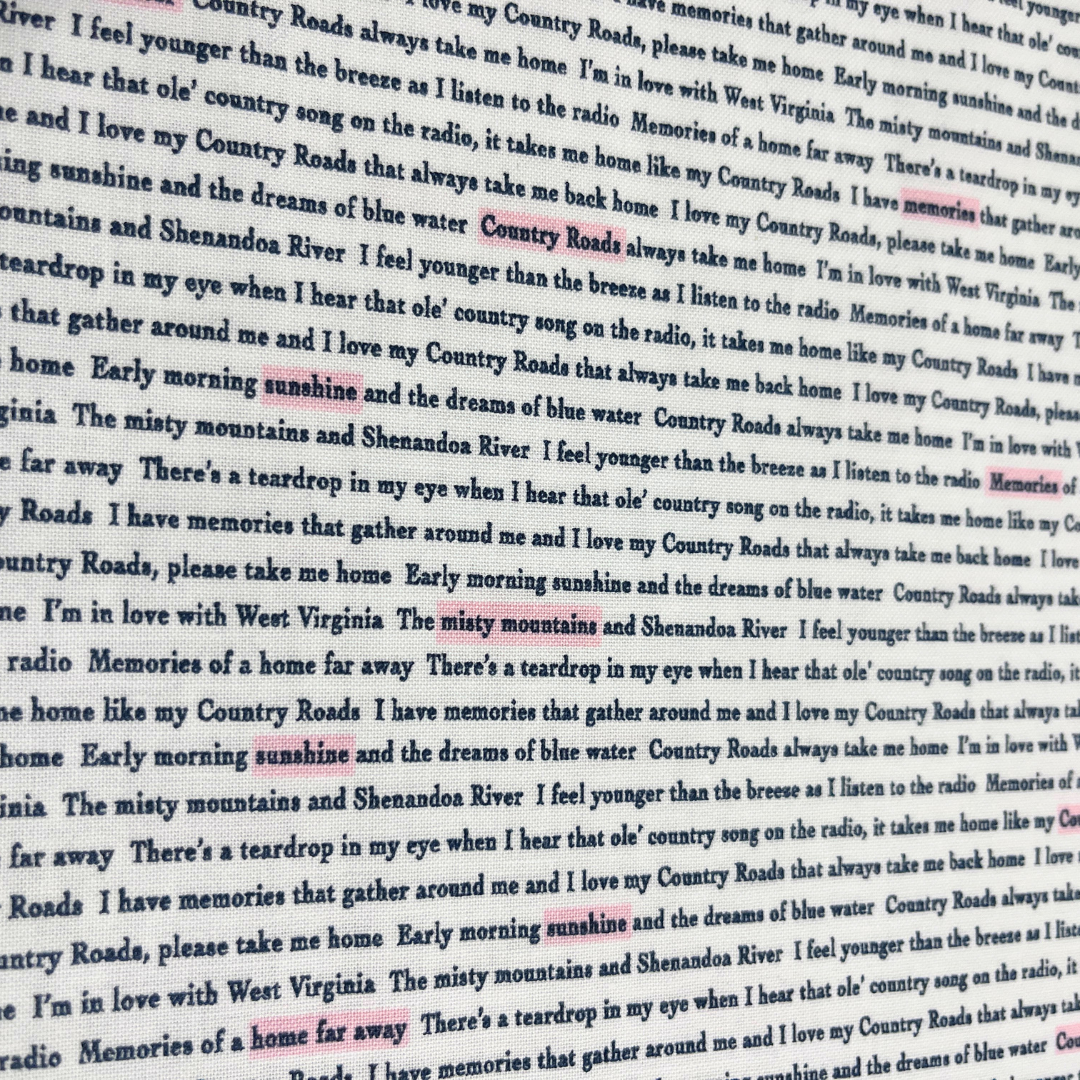 Country Roads always take me home I'm in love with West Virginia The misty mountains and Shenan
River I feel younger than the breeze as I listen to the radio Memories of a home far away There's a teardrop in my ey
I hear that ole' country song on the radio, it takes me home like my Country Roads I have memories that gather aro
and I love my Country Roads that always take me back home I love my Country Roads, please take me home Early
ing sunshine and the dreams of blue water Country Roads always take me home I'm in love with West Virginia The
ountains and Shenandoa River I feel younger than the breeze as I listen to the radio Memories of a home far away
teardrop in my eye when I hear that ole' country song on the radio, it takes me home like my Country Roads I have
that gather around me and I love my Country Roads that always take me back home I love my Country Roads, pleas
home Early morning sunshine and the dreams of blue water Country Roads always take me home I'm in love with
ginia The misty mountains and Shenandoa River I feel younger than the breeze as I listen to the radio Memories of
e far away There's a teardrop in my eye when I hear that ole' country song on the radio, it takes me home like my Co
y Roads I have memories that gather around me and I love my Country Roads that always take me back home I love
ountry Roads, please take me home Early morning sunshine and the dreams of blue water Country Roads always tak
me I'm in love with West Virginia The misty mountains and Shenandoa River I feel younger than the breeze as I list
radio Memories of a home far away There's a teardrop in my eye when I hear that ole' country song on the radio, it
me home like my Country Roads I have memories that gather around me and I love my Country Roads that always tak
home Early morning sunshine and the dreams of blue water Country Roads always take me home I'm in love with
inia The misty mountains and Shenandoa River I feel younger than the breeze as I listen to the radio Memories of
far away There's a teardrop in my eye when I hear that ole' country song on the radio, it takes me home like my Cou
Roads I have memories that gather around me and I love my Country Roads that always take me back home I love
untry Roads, please take me home Early morning sunshine and the dreams of blue water Country Roads always take
e I'm in love with West Virginia The misty mountains and Shenandoa River I feel younger than the breeze as I liste
radio Memories of a home far away There's a teardrop in my eye when I hear that ole' country song on the radio, it
Roads I have memories that gather around me and I love my Country Roads that always tak
sunshine and the dreams of blue water Cou